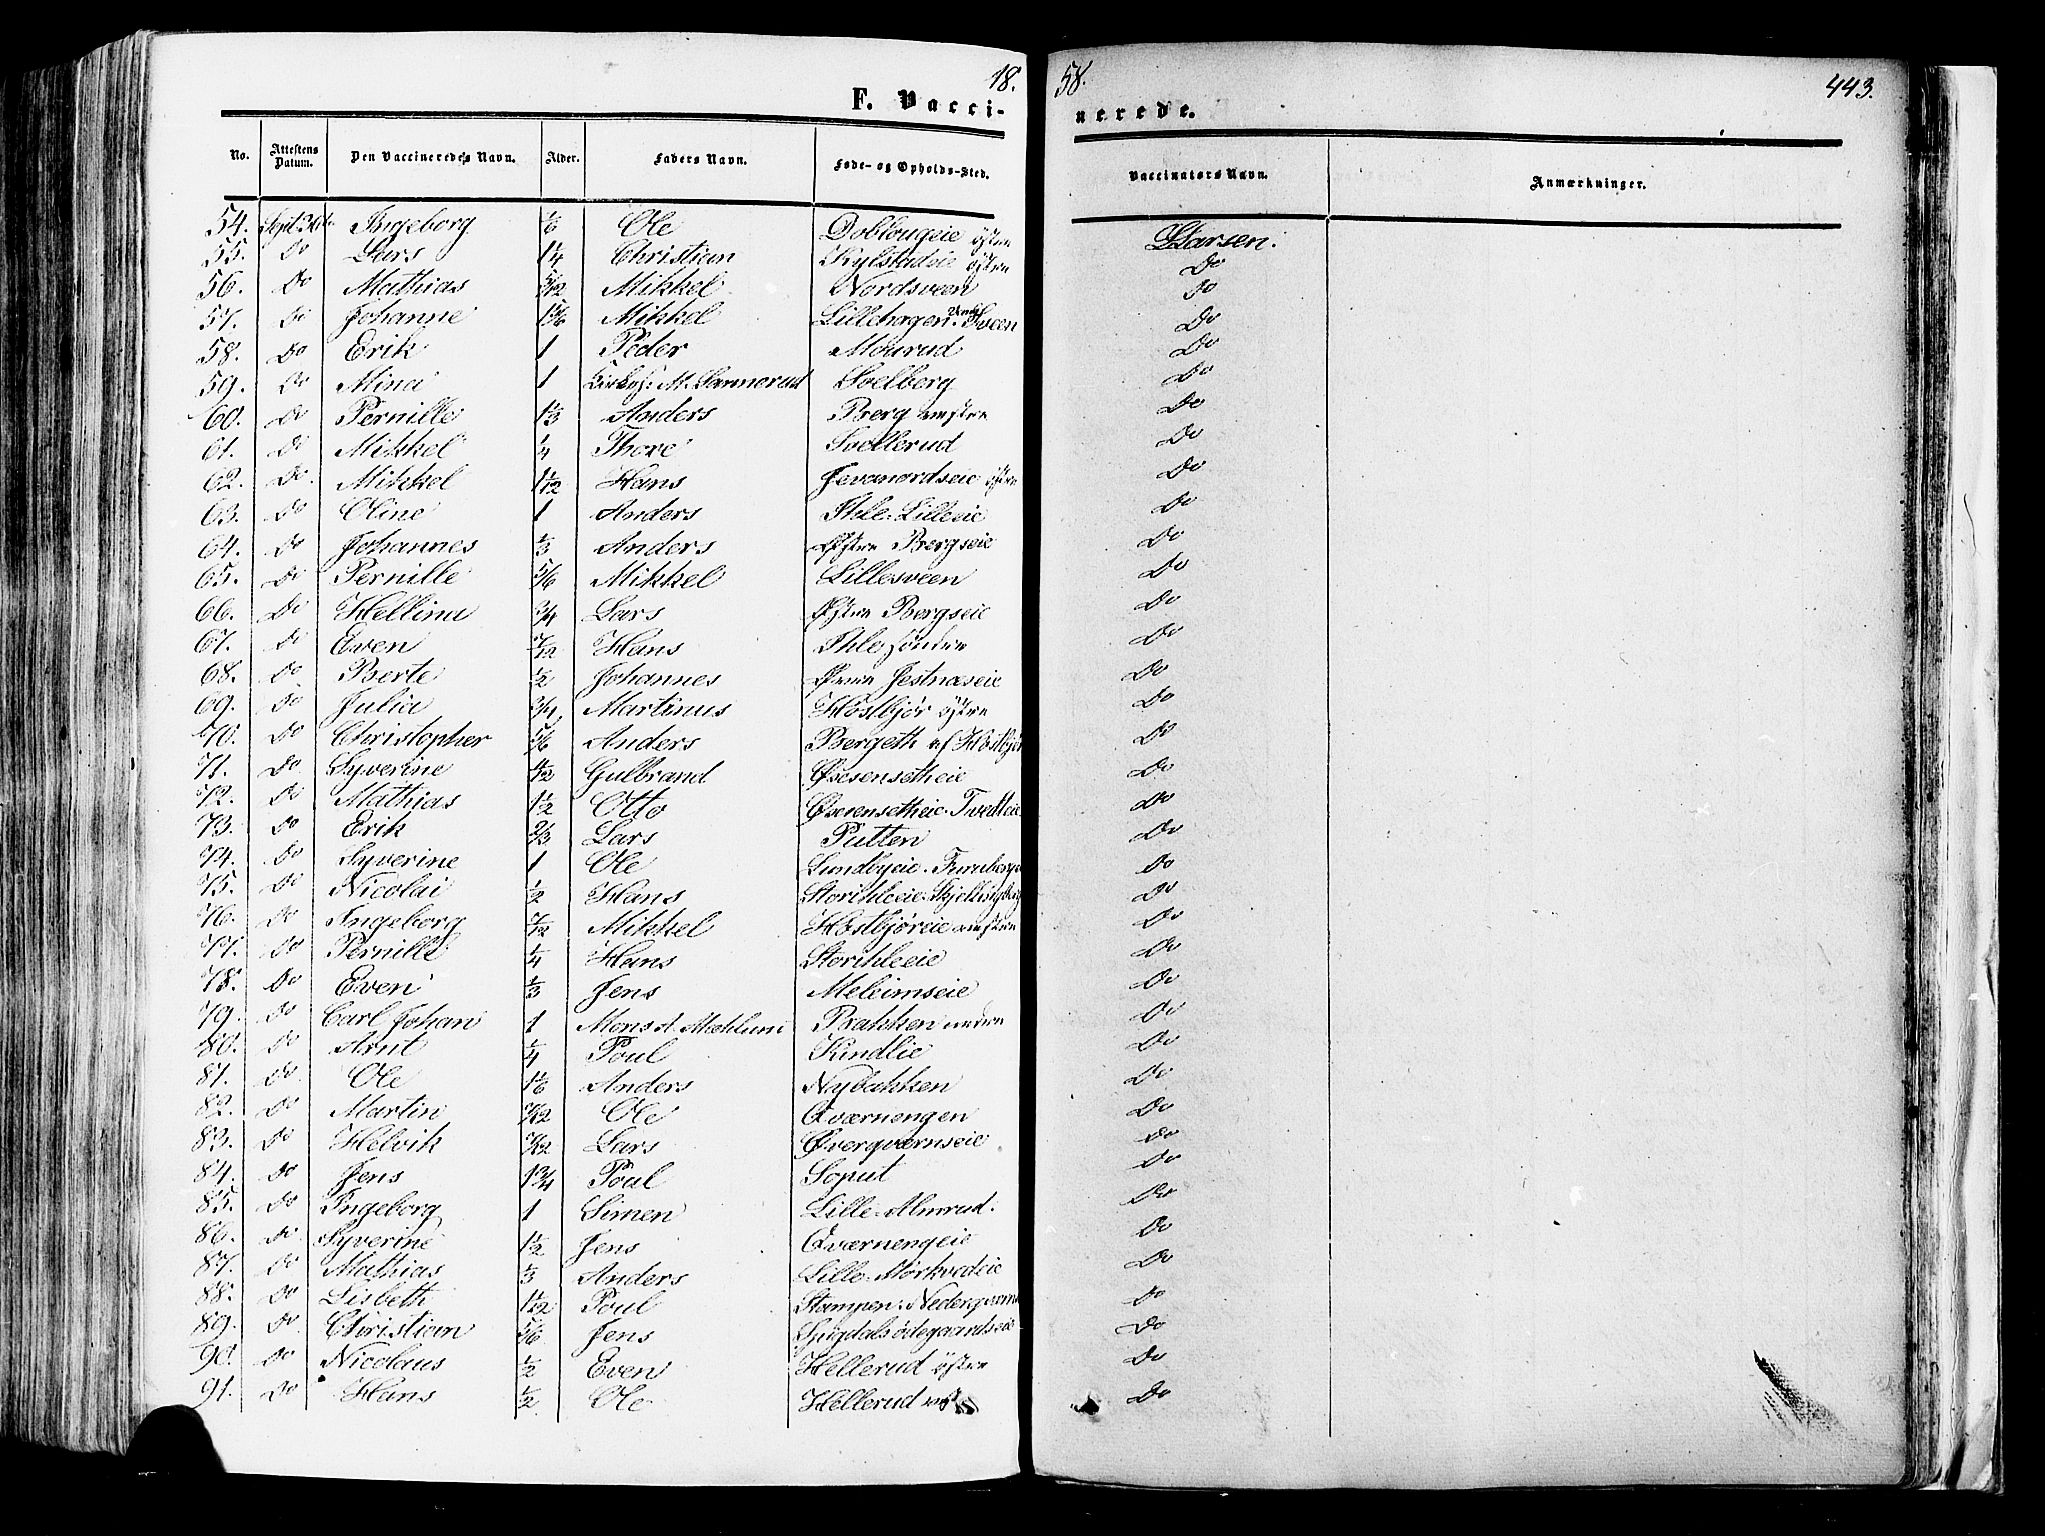 18. 58. 443.
F. Vacci- nerede.
No. Attestens Datum. Den Vaccineredes Navn. Alder. Faders Navn. Føde- og Opholds-Sted. Vaccinators Navn. Anmærkninger.
54. Sept. Ingeborg 1/6 Ole Doblougeie östre Larsen.
55. Do Lars 1 1/4 Christian Kylstadeie östre Do
56. Do Mathias 5/12 Mikkel Nordsveen Do
57. Do Johanne 1 5/6 Mikkel Lillehagen Sveen Do
58. Do Erik 1 Peder Mourud Do
59. Do Mina 1 M. Sannerud Soelberg Do
60. Do Pernille 1 1/3 Anders Berg vestre Do
61. Do Mikkel 1/4 Thore Soellerud Do
62. Do Mikkel 1 1/12 Hans Jevanordseie östre Do
63. Do Oline 1 Anders Ihle-Lilleeie Do
64. Do Johannes 1/3 Anders Østre Bergseie Do
65. Do Pernille 5/6 Mikkel Lillesveen Do
66. Do Hellina 3/4 Lars Østre Bergseie Do
67. Do Even 7/12 Hans Ihle söndre Do
68. Do Berte 1/2 Johannes Øvre Jestnæseie Do
69. Do Julia 3/4 Martinus Hostbjör östre Do
70. Do Christopher 5/6 Anders Bergeth af Hostbjör Do
71. Do Syverine 1/2 Gulbrand Øsesensetheie Do
72. Do Mathias 1 1/2 Otto Øserensetheie-Tvedteie Do
73. Do Erik 2/3 Lars Putten Do
74. Do Syverine 1 Ole Sundbyeie-Furuberge Do
75. Do Nicolai 1/2 Hans Storihleeie Do
76. Do Ingeborg 7/12 Mikkel Hostbjöreie vestre Do
77. Do Pernille 1/4 Hans Storihleeie Do
78. Do Even 1/3 Jens Meleimseie Do
79. Do Carl Johan 1 Mons A. Mæhlum Bakken nedre Do
80. Do Arnt 1/4 Poul Kindlie Do
81. Do Ole 1 1/6 Anders Nybakken Do
82. Do Martin 7/12 Ole Qværnengen Do
83. Do Helvik 7/12 Lars Øverqværnseie Do
84. Do Jens 1 3/4 Poul Soput Do
85. Do Ingeborg 1 Simen Lille-Almrud. Do
86. Do Syverine 1 1/2 Jens Qværnengeie Do
87. Do Mathias 1/3 Anders Lille-Mörkvedeie Do
88. Do Lisbeth 1 1/12 Poul Stampen Do
89. Do Christian 5/6 Jens Sjugdalsödegaardseie Do
90. Do Nicolaus 1/2 Even Hellerud östre Do
91. Do Hans 1/2 Ole Hellerud Do